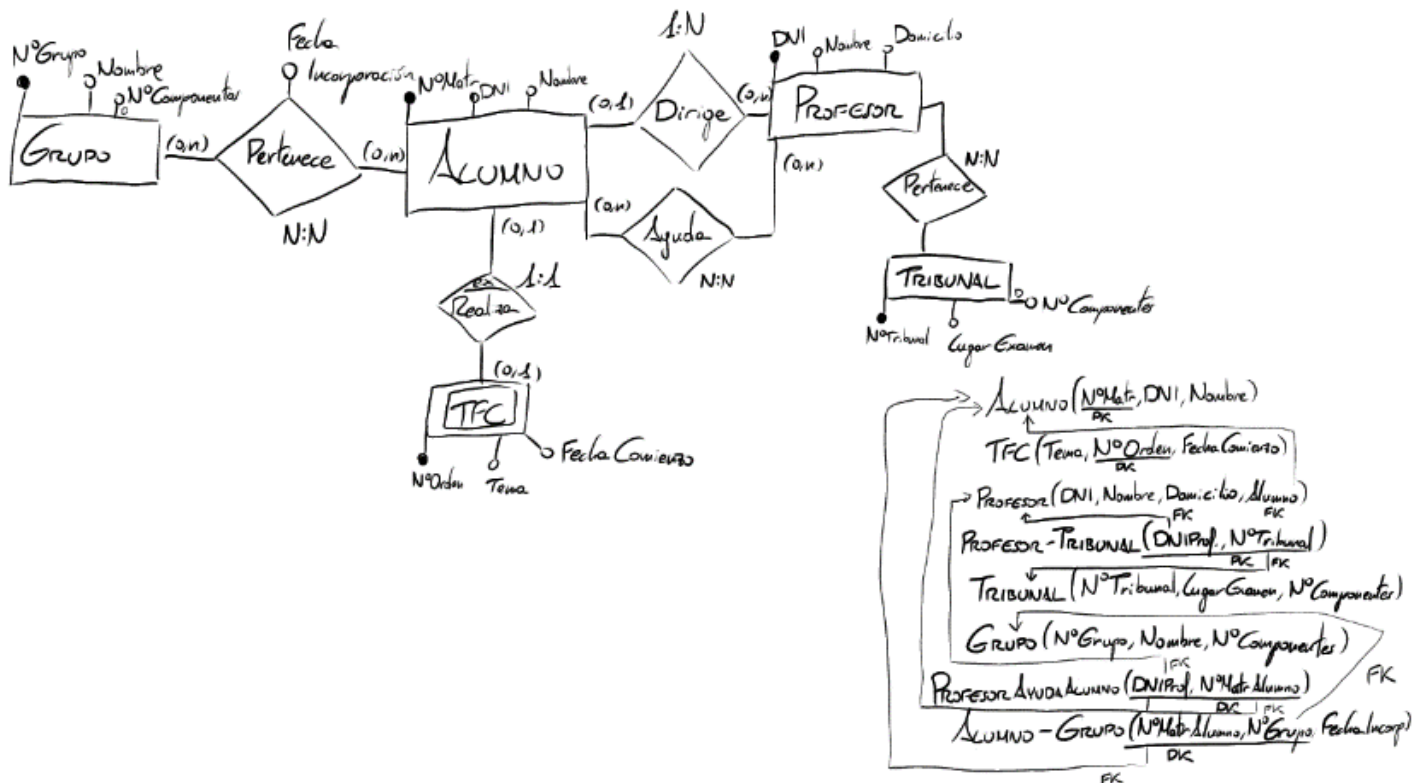 NºGrupo
Nombre
NºComponentes
GRUPO
(0,n)
Fecha
Incorporación
Pertenece
N:N
(0,n)
NºMatr
DNI
Nombre
ALUMNO
(0,1)
1:N
Dirige
(0,n)
DNI
Nombre
Domicilio
PROFESOR
(0,n)
(0,n)
Ayuda
N:N
N:N
Pertenece
TRIBUNAL
NºComponentes
NºTribunal
Lugar Examen
(0,1)
1:1
ex
Realiza
(0,1)
TFC
Fecha Comienzo
NºOrden
Tema
ALUMNO (NºMatr, DNI, Nombre)
PK
TFC (Tema, NºOrden, Fecha Comienzo)
PK
PROFESOR (DNI, Nombre, Domicilio, Alumno)
FK
FK
PROFESOR-TRIBUNAL (DNIProf., NºTribunal)
PK
FK
TRIBUNAL (NºTribunal, Lugar Examen, NºComponentes)
GRUPO (NºGrupo, Nombre, NºComponentes)
FK
FK
PROFESOR AYUDA ALUMNO (DNIProf, NºMatr Alumno)
PK
FK
ALUMNO-GRUPO (NºMatr Alumno, NºGrupo, Fecha Incorp)
PK
FK